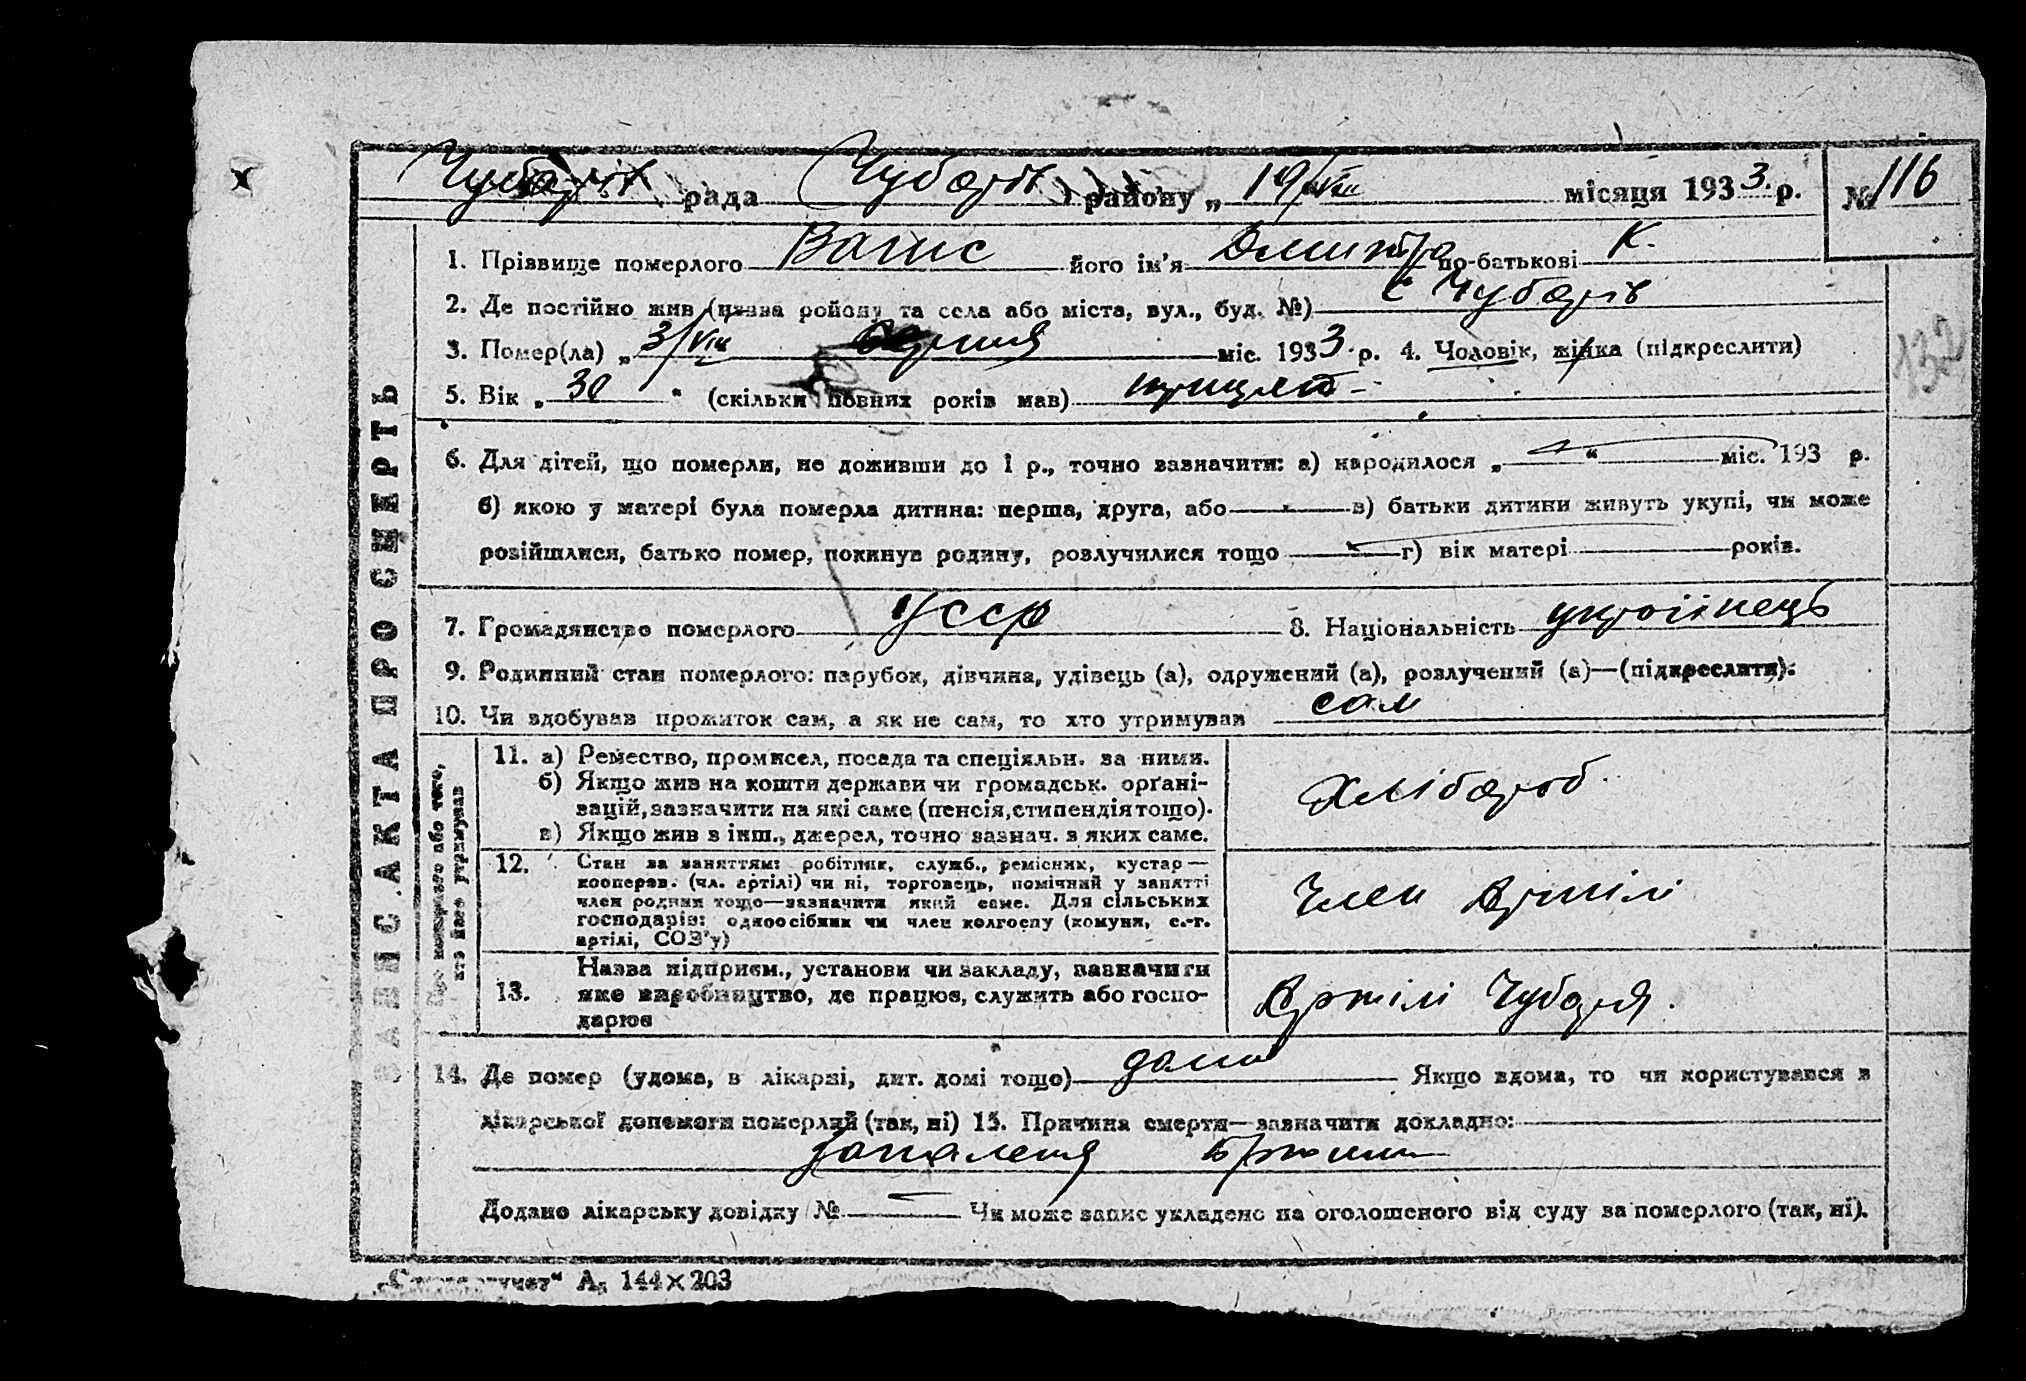 Чубарів рада Чубарів району „ 19/VIII місяця 1933. р. № 116
1. Прізвище померлого Вагис його ім'я Дмитро по-батькові К.
132
2. Де постійно жив (назва району та села або міста, вул., буд. №) с Чубарів
3. Помер(ла) „ 3/VIII серпня міс. 1933 р. 4. Чоловік, жінка (підкреслити)
5. Вік „ 30 “ (скільки повних років мав) трицять
6. Для дітей, що померли, не доживши до 1 р., точно зазначити: а) народилося „ “ міс. 193 р.
б) якою у матері була померла дитина: перша, друга, або в) батьки дитини живуть укупі, чи може
розійшлися, батько помер, покинув родину, розлучилися тощо г) вік матері років.
7. Громадянство померлого УССР 8. Національність українець
9. Родинний стан померлого: парубок, дівчина, удівець (а), одружений (а), розлучений (а)—(підкреслити).
10. Чи здобував прожиток сам, а як не сам, то хто утримував сам
11. а) Ремество, промисел, посада та спеціяльн. за ними.
б) Якщо жив на кошти держави чи громадськ. орґані-
зацій, зазначити на які саме (пенсія, стипендія тощо).
в) Якщо жив з інш., джерел, точно зазнач. з яких саме.
Хлібароб
12. Стан за заняттям: робітник, служб., ремісник, кустар—
кооперав. (чл. артілі) чи ні, торговець, помічний у занятті
член родини тощо—зазначити який саме. Для сільських
господарів: одноосібник чи член колгоспу (комуни, с.-г.
артілі, СОЗ'у)
Член Артілі
13. Назва підприєм., установи чи закладу, зазначити
яке виробництво, де працює, служить або госпо-
дарює
Артілі Чубаря.
14. Де помер (удома, в лікарні, дит. домі тощо) дома Якщо вдома, то чи користувався з
лікарської допомоги померлий (так, ні) 15. Причина смерти—зазначити докладно:
запаления
Додано лікарську довідку № Чи може запис укладено на оголошеного від суду за померлого (так, ні).
А₅ 144×203
ЗАПИС АКТА ПРО СМЕРТЬ
Про померлого або того,
хто його утримував